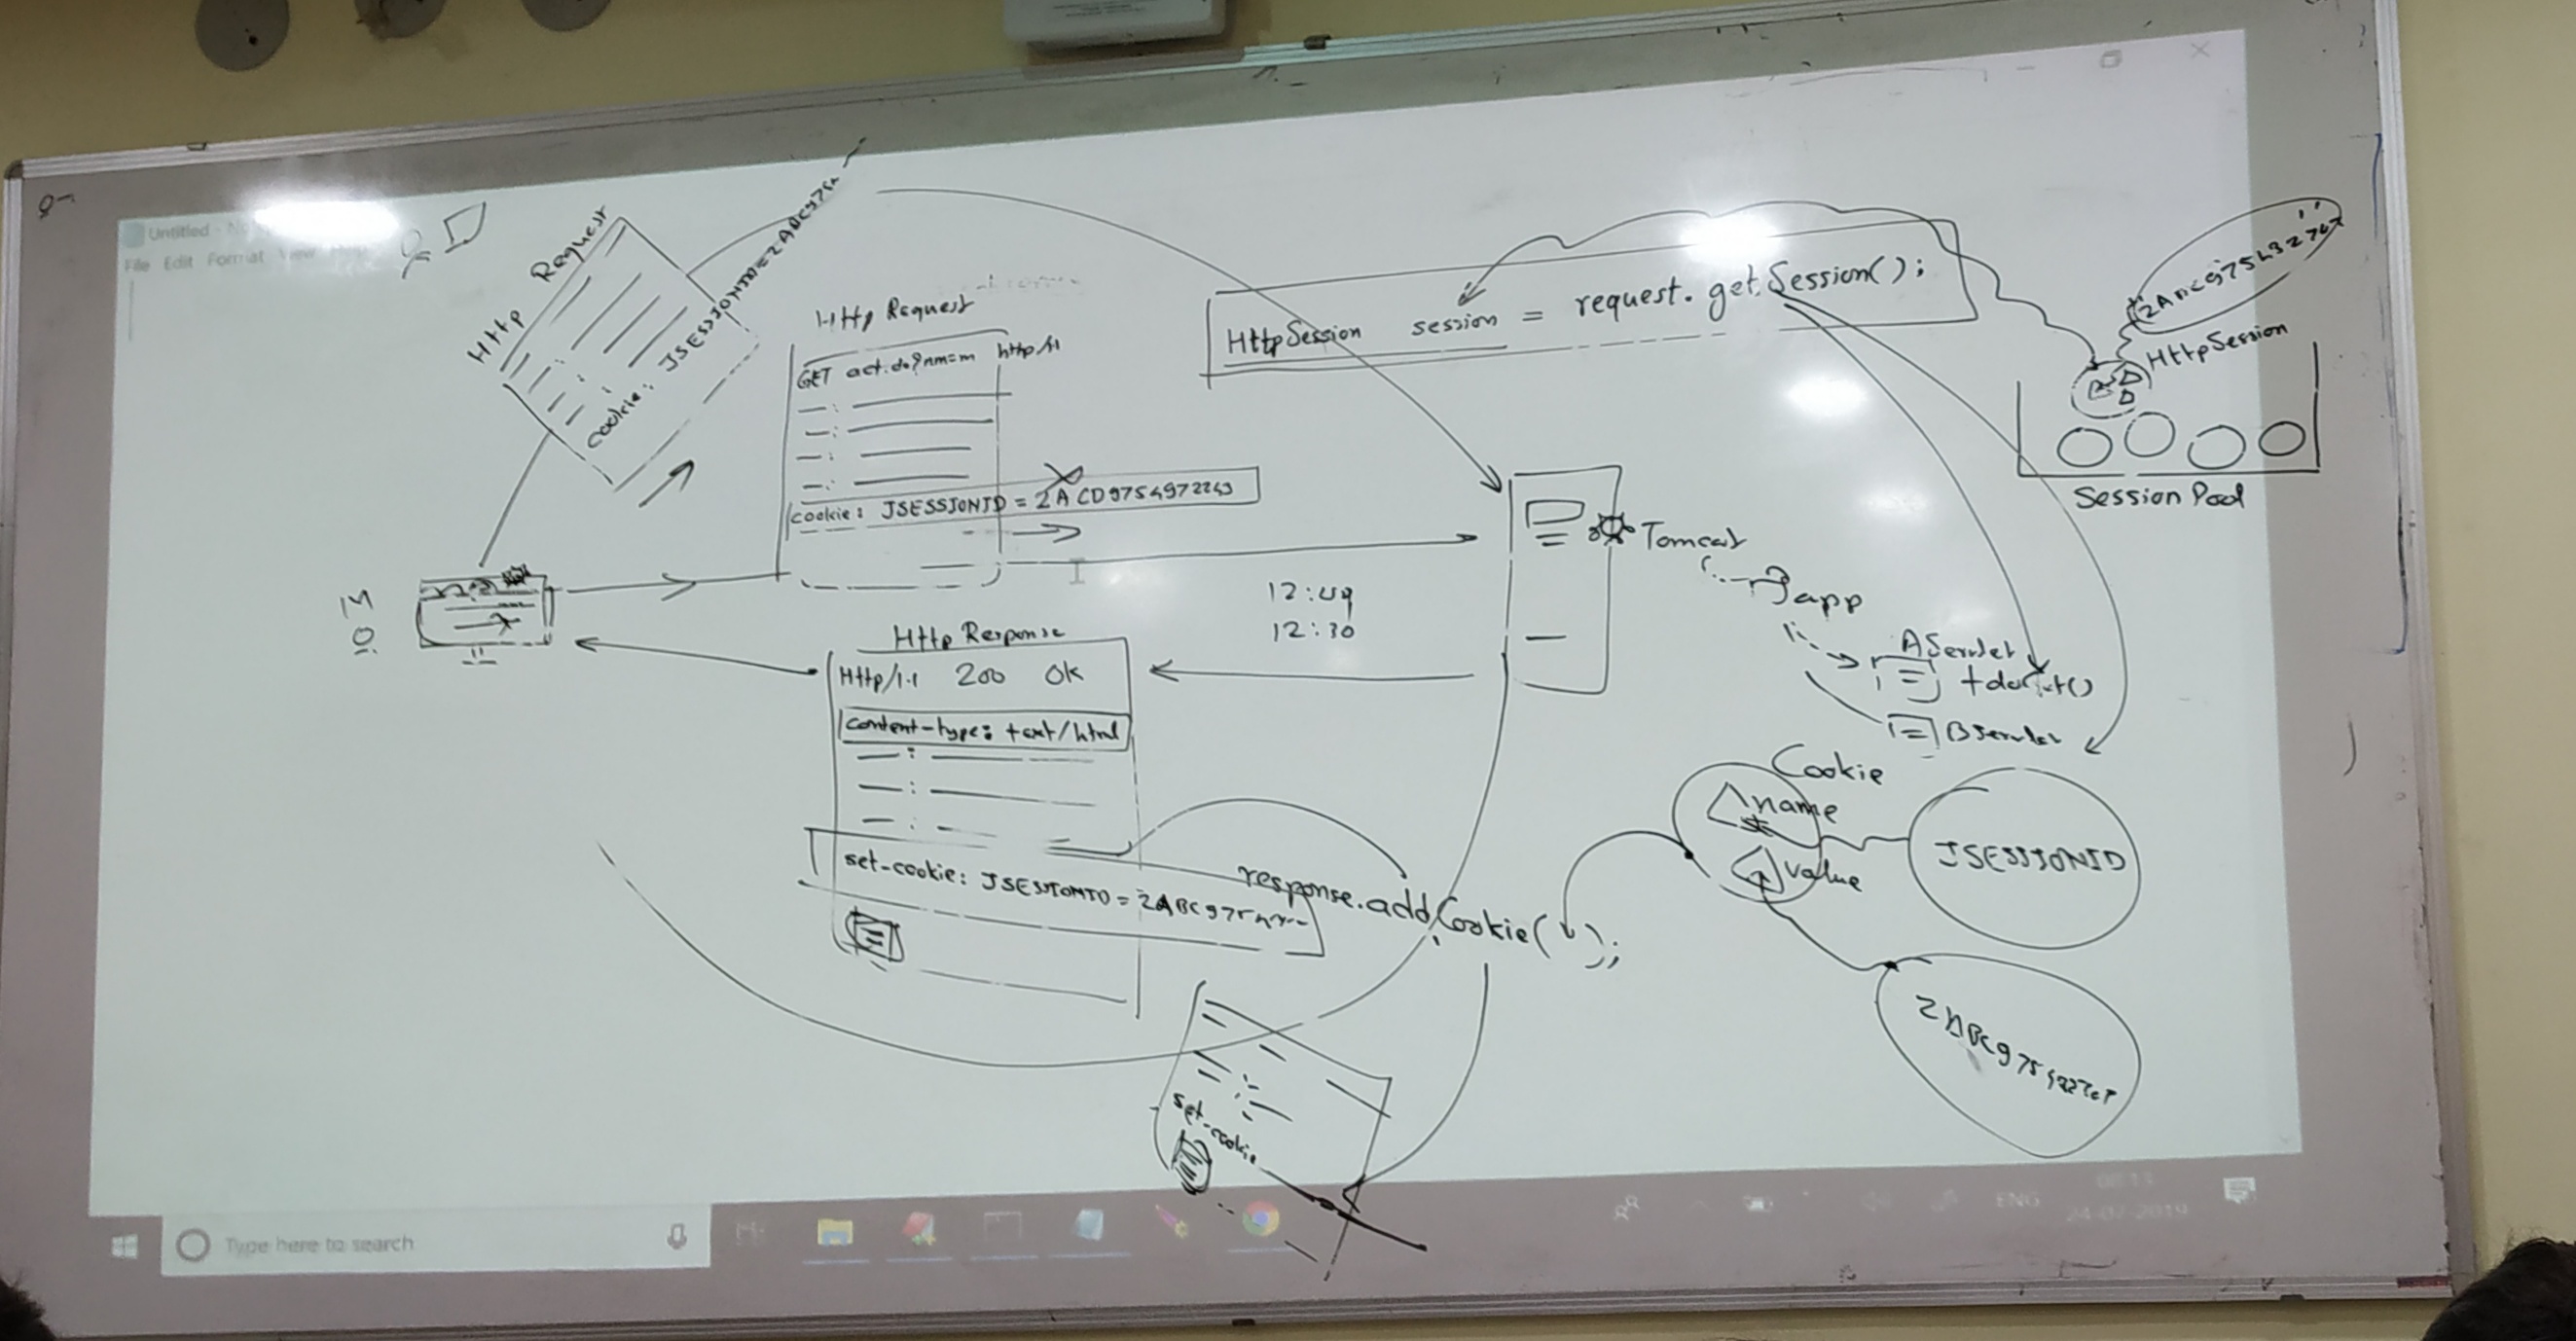 Untitled
File Edit Format View
Http Request
cookie: JSESSIONID=2ABC975
Http Request
GET act.do?nm=m http/1.1
cookie: JSESSIONID = 2ACD9754972243
HttpSession session = request.getSession();
HttpSession
Session Pool
Tomcat
app
AServlet
BServlet
M
12:49
12:30
Http Response
Http/1.1 200 OK
content-type: text/html
set-cookie: JSESSIONID = 2ABC975
response.addCookie( );
Cookie
name
value
JSESSIONID
set-cookie
Type here to search
ENG
24-07-2019